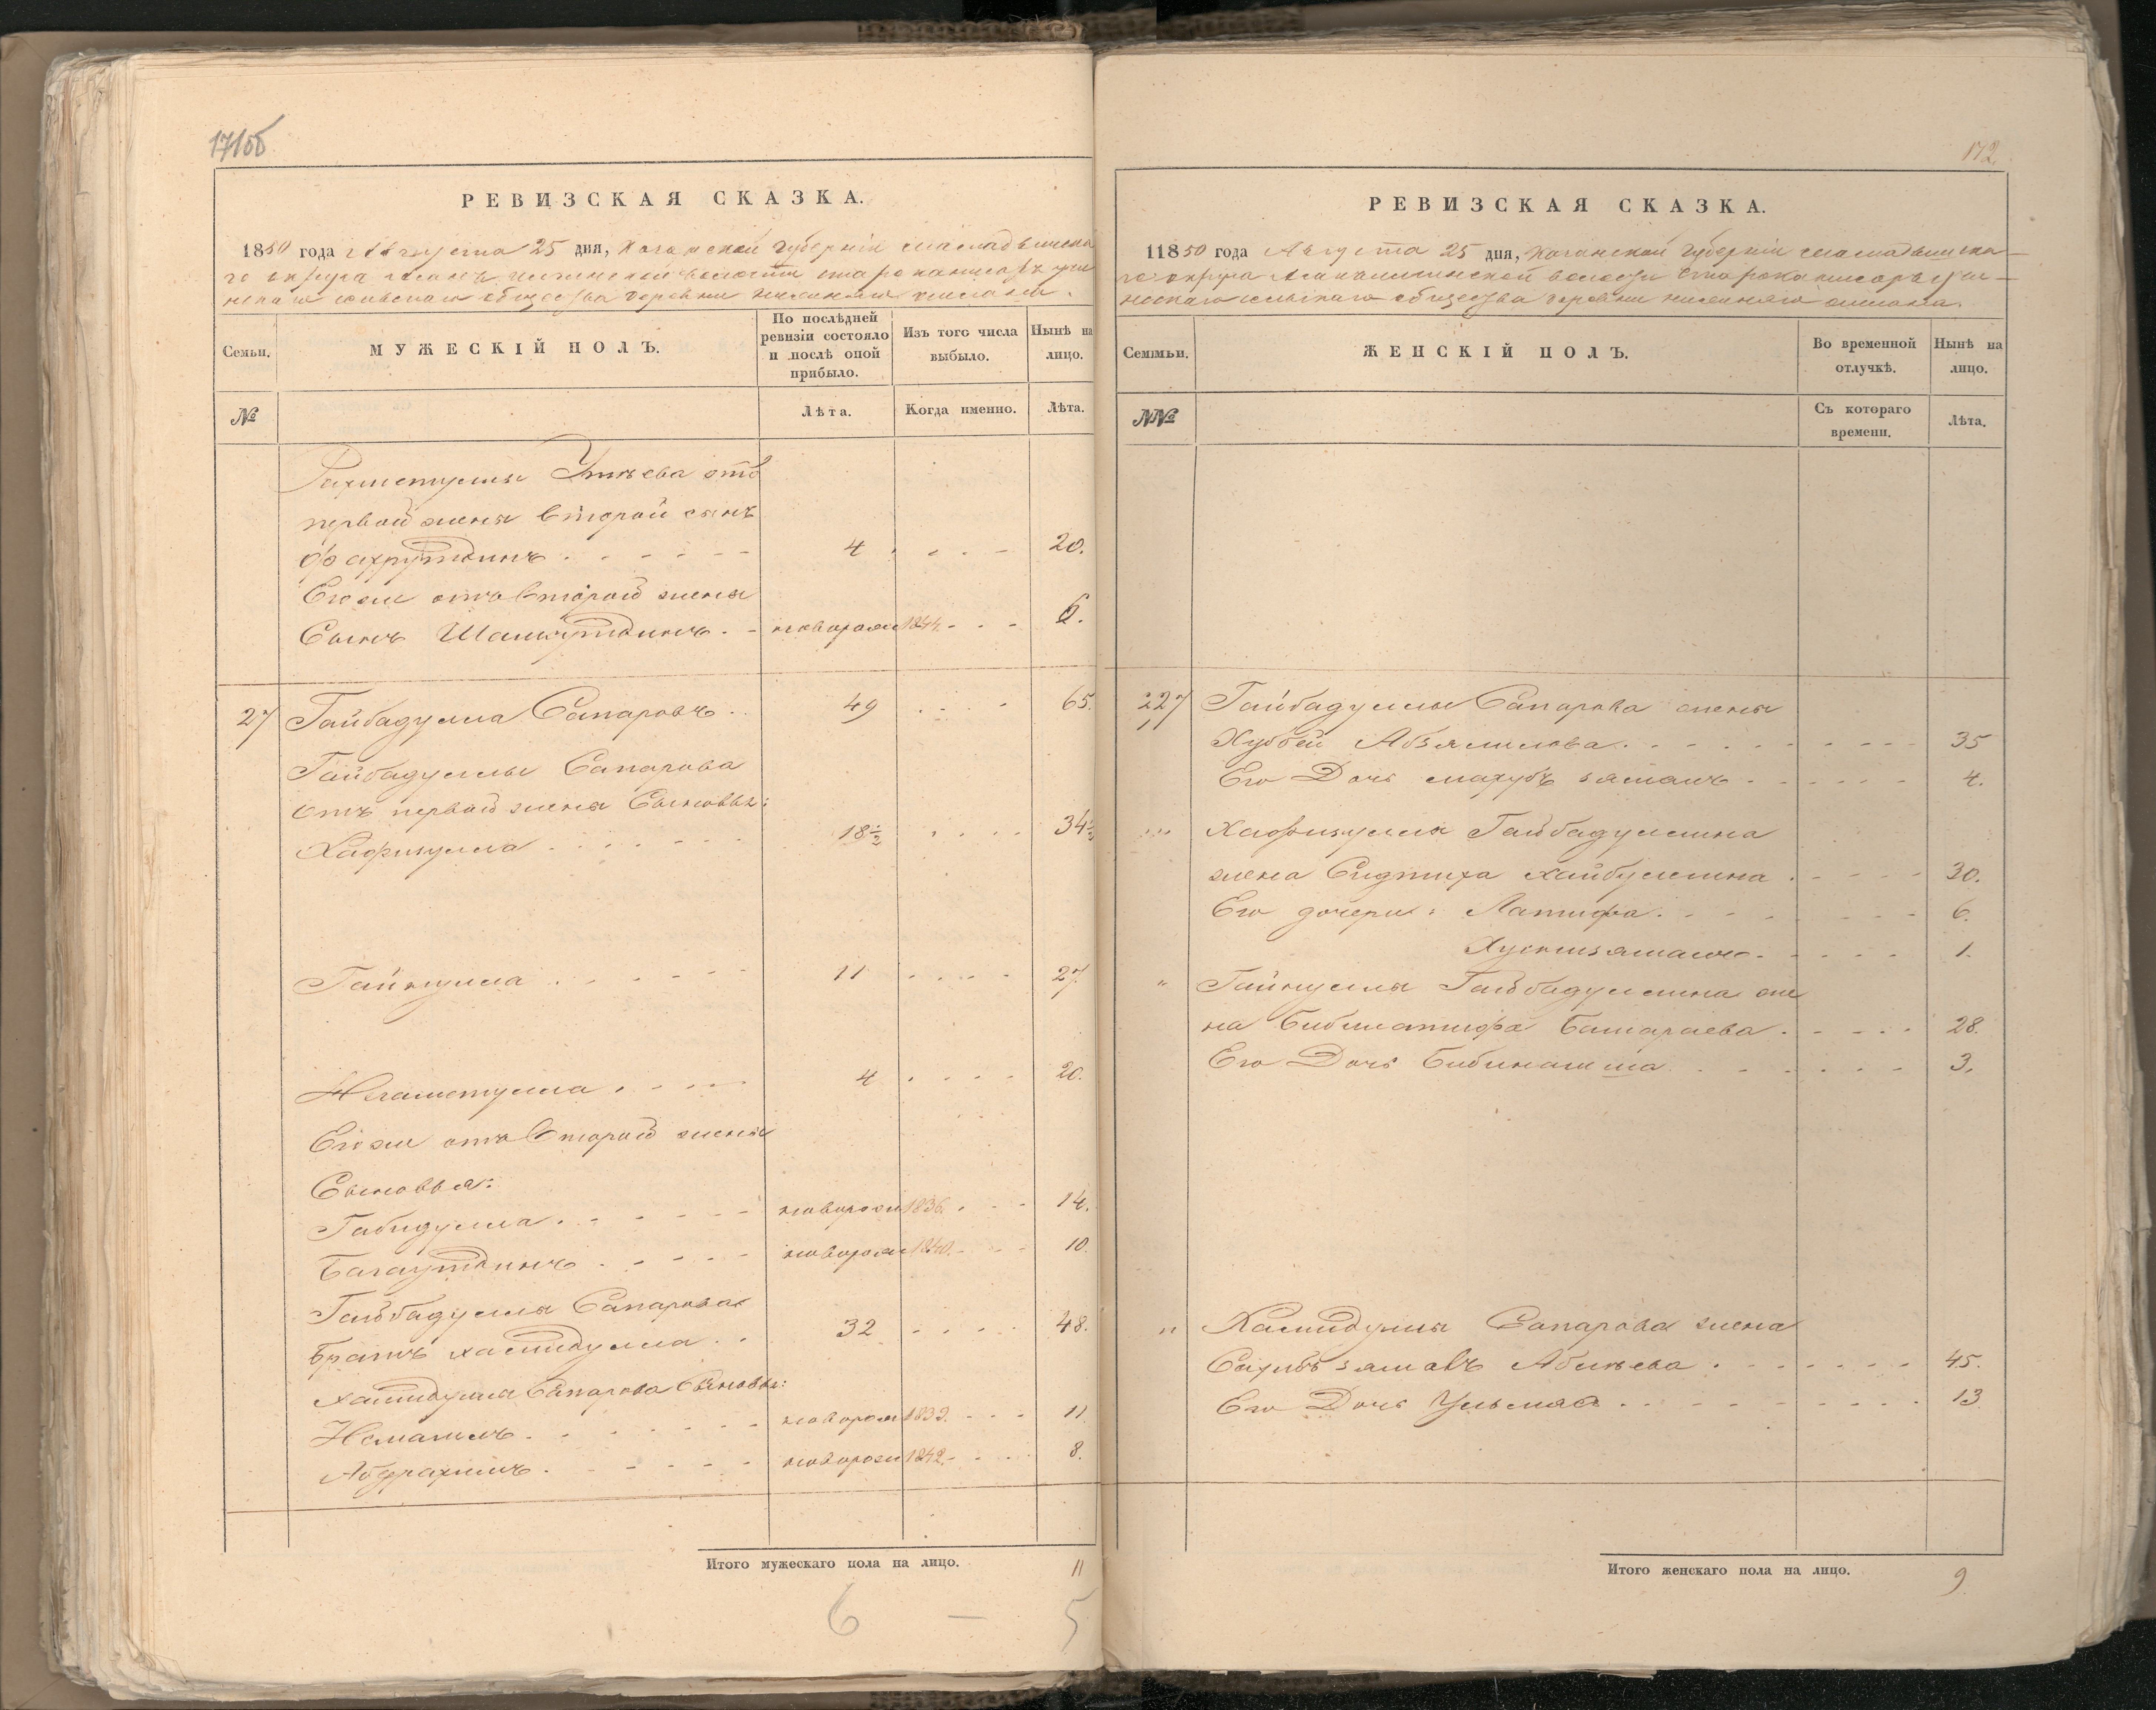 171об
РЕВИЗСКАЯ СКАЗКА.
1850 года Августа 25 дня, Казанской Губерніи Мамадышска
го округа волости
сельскаго общества деревни
Семьи.
МУЖЕСКІЙ ПОЛЪ.
По послѣдней ревизіи состояло и послѣ оной прибыло.
Изъ того числа выбыло.
Нынѣ на лицо.
№
Лѣта.
Когда именно.
Лѣта.
Рахметуллы Утяева отъ
первой жены второй сынъ
Фахрутдинъ 4 20.
Его же отъ второй жены
Сынъ Шамсутдинъ новорож 1844 6.
27 Гайбадулла Сапаровъ 49 65.
Гайбадуллы Сапарова
отъ первой жены Сыновья:
Хафизулла 18½ 34½
Гайнулла 11 27
Нгаметулла 4 20.
Его же отъ второй жены
Сыновья:
Габидулла новорож 1836 14.
Багаутдинъ новорож 1840 10.
Гайбадуллы Сапарова
братъ Хамидулла 32 48.
Хамидуллы Сапарова Сыновья:
Исмагилъ новорож 1839 11
Абдрахимъ новорож 1842 8.
Итого мужескаго пола на лицо. 11
6 — 5
172
РЕВИЗСКАЯ СКАЗКА.
11850 года Августа 25 дня, Казанской Губерніи Мамадышска
го округа волости
сельскаго общества деревни
Семмьи.
ЖЕНСКІЙ ПОЛЪ.
Во временной отлучкѣ.
Нынѣ на лицо.
№№
Съ котораго времени.
Лѣта.
227 Гайбадуллы Сапарова жены
Хуббей Абзялилова 35
Его Дочь Махубъ зяманъ 4.
Хафизуллы Гайбадуллина
жена Сидтиха Хайбуллина 30.
Его дочери: Латифа 6.
Хуснизяманъ 1.
" Гайнуллы Гайбадуллина же
на Бибилатифа Башараева 28.
Его Дочь Бибинагима 3.
" Хамидуллы Сапарова жена
Абляева 45.
Его Дочь Ульмяс 13
Итого женскаго пола на лицо. 9